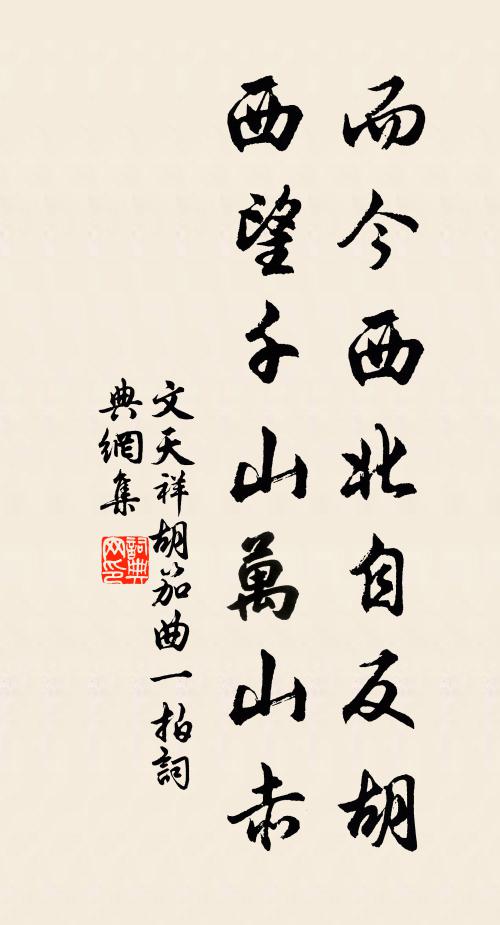 而今西北自反胡
西望千山萬山赤
文天祥胡笳曲一拍詞
典網集
詞典網印